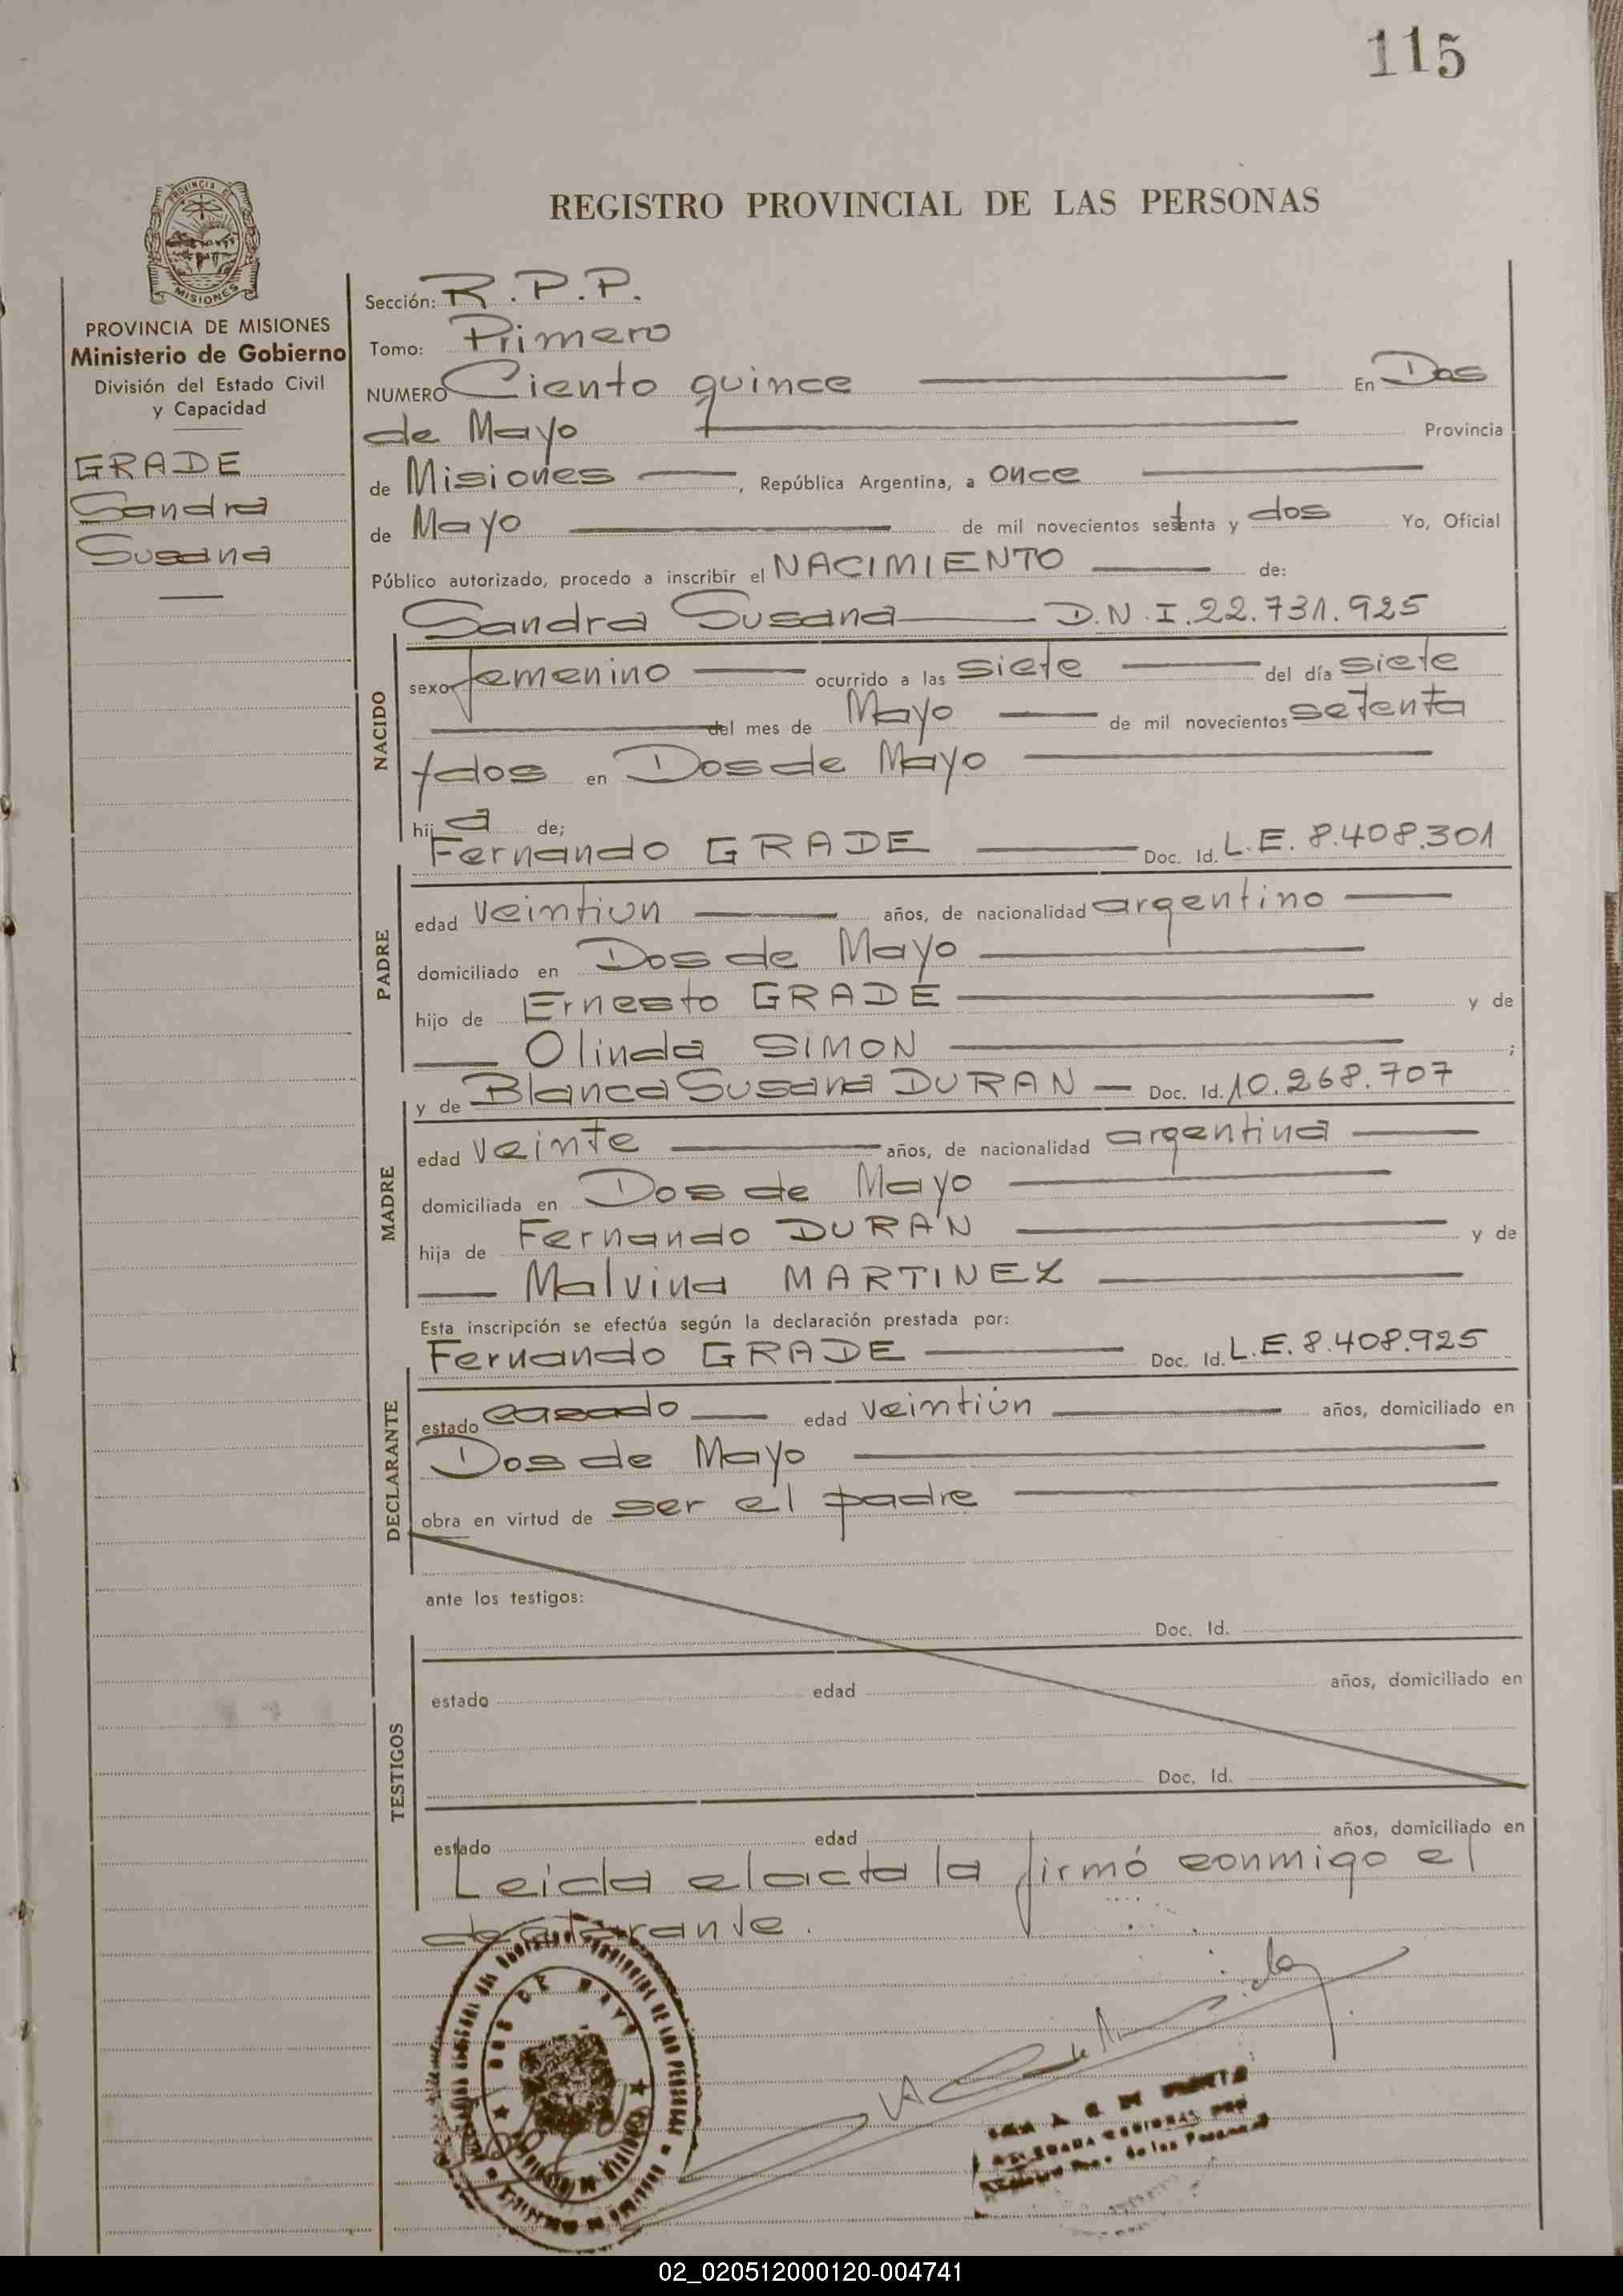 115
REGISTRO PROVINCIAL DE LAS PERSONAS
PROVINCIA DE
MISIONES
PROVINCIA DE MISIONES
Ministerio de Gobierno
División del Estado Civil
y Capacidad
GRADE
Sandra
Susana
Sección: R.P.P.
Tomo: Primero
NUMERO Ciento quince En Dos
de Mayo Provincia
de Misiones, República Argentina, a once
de Mayo de mil novecientos setenta y dos Yo, Oficial
Público autorizado, procedo a inscribir el NACIMIENTO de:
Sandra Susana D.N.I. 22.731.925
NACIDO
sexo femenino ocurrido a las siete del día siete
del mes de Mayo de mil novecientos setenta
y dos en Dos de Mayo
hija de;
Fernando GRADE Doc. Id. L.E. 8.408.301
PADRE
edad veintiun años, de nacionalidad argentino
domiciliado en Dos de Mayo
hijo de Ernesto GRADE y de
Olinda SIMON ;
y de Blanca Susana DURAN Doc. Id. 10.268.707
MADRE
edad veinte años, de nacionalidad argentina
domiciliada en Dos de Mayo
hija de Fernando DURAN y de
Malvina MARTINEZ
Esta inscripción se efectúa según la declaración prestada por:
Fernando GRADE Doc. Id. L.E. 8.408.925
DECLARANTE
estado casado edad veintiún años, domiciliado en
Dos de Mayo
obra en virtud de ser el padre
ante los testigos:
Doc. Id.
TESTIGOS
estado edad años, domiciliado en
Doc. Id.
estado edad años, domiciliado en
Leida el acta la firmó conmigo el
declarante.
DOS DE MAYO
de las Personas
02_020512000120-004741